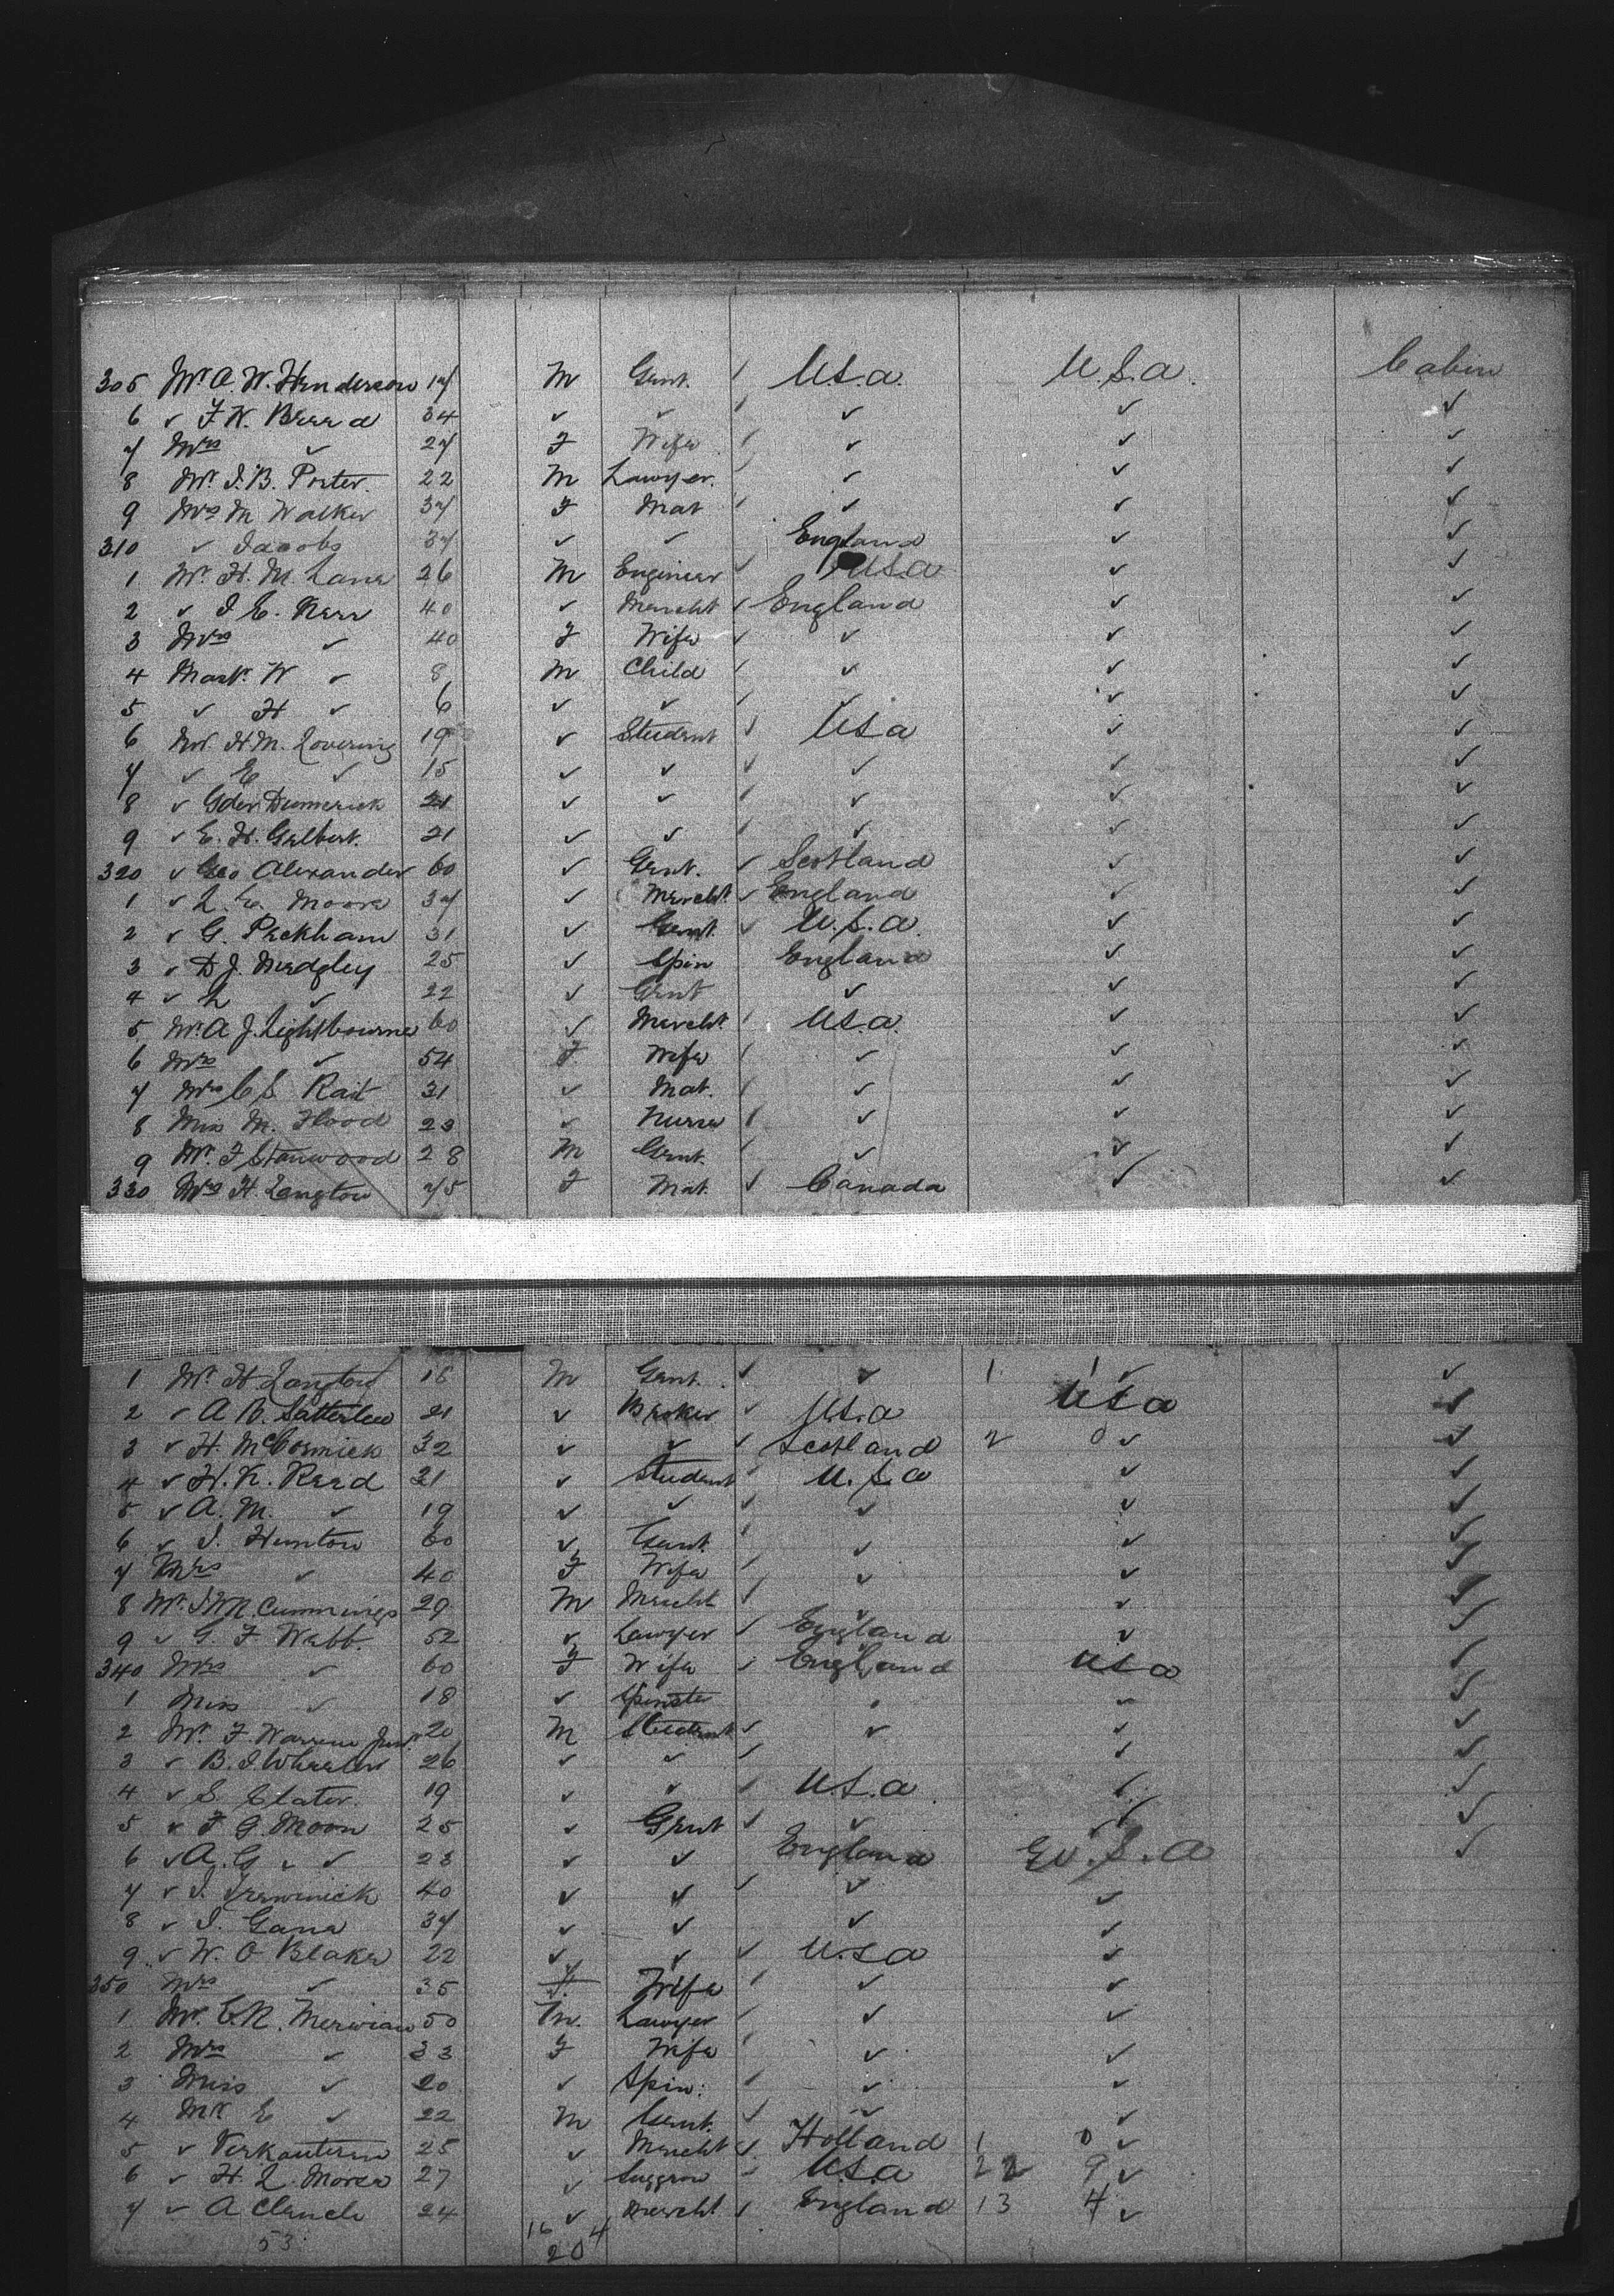 305 Mr A. W. Henderson 17 M Gent. / U.S.a. U.S.a. Cabin
6 ✓ F W. Beard 34 ✓ ✓ / ✓ ✓ ✓
7 Mrs ✓ 27 F Wife / ✓ ✓ ✓
8 Mr. I. B. Porter. 22 M Lawyer. / ✓ ✓ ✓
9 Mrs M Walker 37 F Mat / ✓ ✓ ✓
310 ✓ Jacobs 37 ✓ ✓ England ✓ ✓
1 Mr. H. M. Lane 26 M Engineer ✓ USa ✓ ✓
2 ✓ J E. Kerr 40 ✓ Mercht ✓ England ✓ ✓
3 Mrs ✓ 40 F Wife ✓ ✓ ✓ ✓
4 Mastr. W ✓ 8 M Child / ✓ ✓ ✓
5 ✓ H ✓ 6 ✓ ✓ / ✓ ✓ ✓
6 Mr. H M. Lovering 19 ✓ Student ✓ USa ✓ ✓
7 ✓ E ✓ 15 ✓ ✓ ✓ ✓ ✓ ✓
8 ✓ 21 ✓ ✓ / ✓ ✓ ✓
9 ✓ E. H. Galbert. 21 ✓ ✓ / ✓ ✓ ✓
320 ✓ Geo Alexander 60 ✓ Gent. ✓ Scotland ✓ ✓
1 ✓ L. E. Moore 37 ✓ Mercht. ✓ England ✓ ✓
2 ✓ G. Peckham 31 ✓ Gent. ✓ U.S.a. ✓ ✓
3 ✓ D J. Medgley 25 ✓ Spin England ✓ ✓
4 ✓ L ✓ 22 ✓ Gent ✓ ✓ ✓
5 Mr. A J. Lightbourne 60 ✓ Mercht. / USa. ✓ ✓
6 Mrs ✓ 54 F. Wife / ✓ ✓ ✓
7 Mrs C S. Rait 31 ✓ Mat. / ✓ ✓ ✓
8 Miss M. Flood 23 ✓ Nurse / ✓ ✓ ✓
9 Mr. F Stanwood 28 M Gent. / ✓ ✓ ✓
330 Mrs H. Langton 75 F Mat. ✓ Canada ✓ ✓
1 Mr. H Langton 18 M Gent. ✓ ✓ 1 1 ✓ ✓
2 ✓ A B. Satterlee 21 ✓ Broker ✓ U.S.a USa ✓
3 ✓ H. McCormick 32 ✓ ✓ ✓ Scotland 2 0 ✓ ✓
4 ✓ H. K. Reed 21 ✓ Student ✓ U.S.a ✓ ✓
5 ✓ A. M. ✓ 19 ✓ ✓ ✓ ✓ ✓ ✓
6 ✓ J. Hunton 60 ✓ Gent. / ✓ ✓ ✓
7 Mrs ✓ 40 F Wife / ✓ ✓ ✓
8 Mr. Cummings 29 M Mercht / ✓ ✓ ✓
9 ✓ G. F Webb. 52 ✓ Lawyer ✓ England ✓ ✓
340 Mrs ✓ 60 F Wife ✓ England USa ✓
1 Miss ✓ 18 ✓ Spinster ✓ ✓ ✓
2 Mr. F Warren Jun. 20 M Student ✓ ✓ ✓ ✓
3 ✓ B. I Wheeler 26 ✓ ✓ ✓ ✓ ✓
4 ✓ S. Clater. 19 ✓ ✓ ✓ U.S.a ✓ ✓
5 ✓ F G. Moon 25 ✓ Gent ✓ ✓ ✓ ✓
6 ✓ A. G ✓ ✓ 23 ✓ ✓ England U.S.A ✓
7 ✓ J. 40 ✓ ✓ ✓ ✓ ✓
8 ✓ J. Gane 37 ✓ ✓ ✓ ✓
9 ✓ W. O Blake 22 ✓ ✓ ✓ U.S.a ✓
350 Mrs ✓ 35 F. Wife / ✓ ✓
1 Mr. E.R. Merwian 50 M. Lawyer / ✓ ✓
2 Mrs ✓ 33 F Wife / ✓ ✓
3 Miss ✓ 20 ✓ Spin: / ✓ ✓
4 Mr E ✓ 22 M Gent. ✓ ✓ ✓
5 ✓ Verkouteren 25 ✓ Mercht ✓ Holland 1 0 ✓
6 ✓ H. L. Morse 27 ✓ ✓ U.S.a 22 9 ✓
7 ✓ A Clench 24 ✓ Mercht. ✓ England 13 4 ✓
53 16 4
20